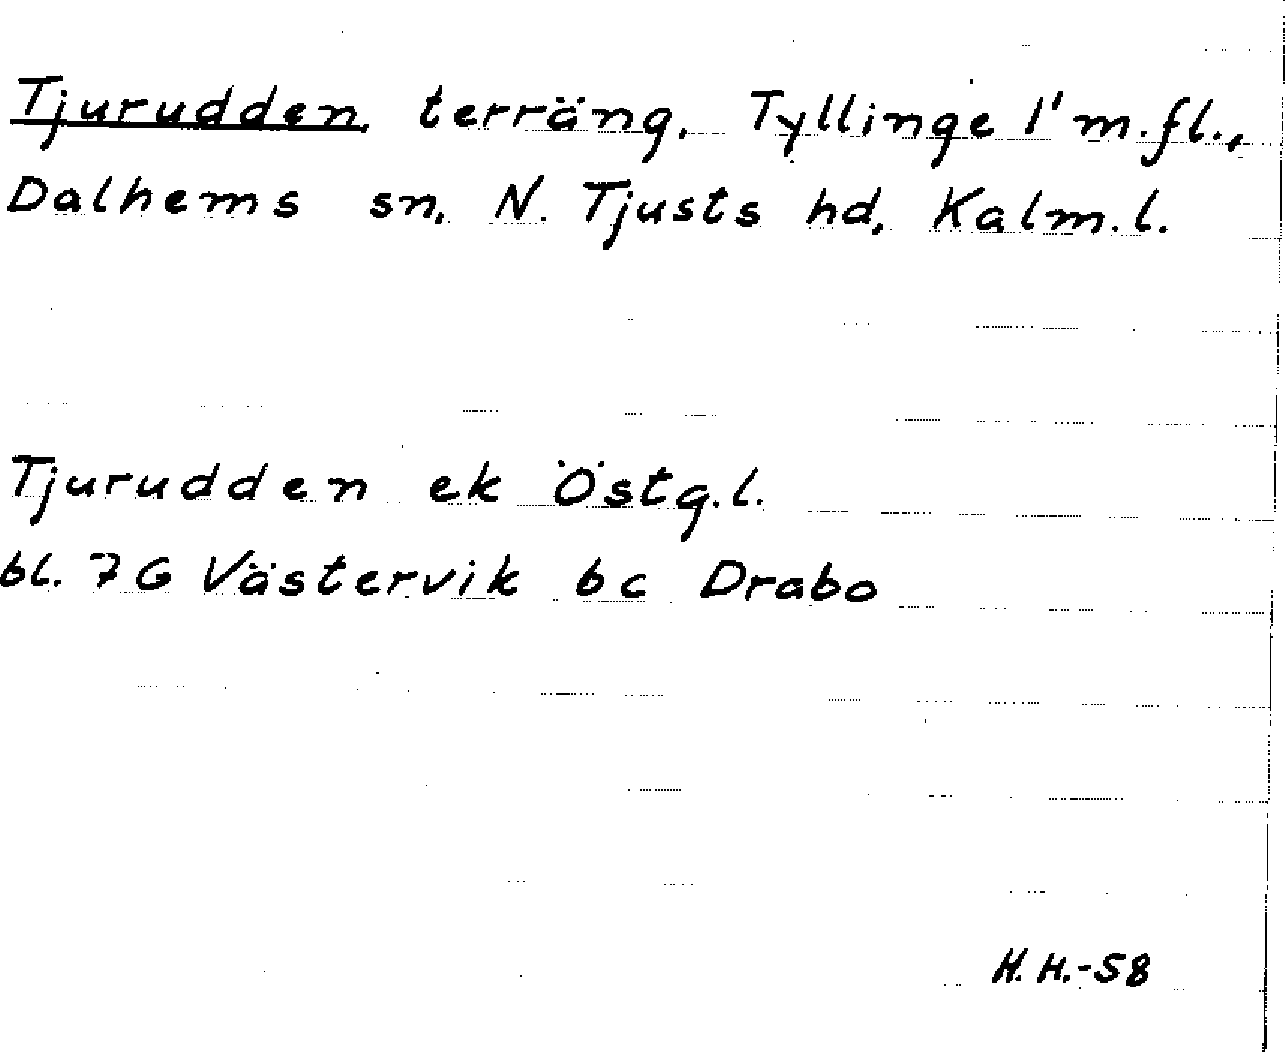 Tjurudden, terräng, Tyllinge 1' m.fl.,
Dalhems sn, N. Tjusts hd, Kalm.l.
Tjurudden ek Östg.l.
bl. 7G Västervik bc Drabo
H.H.-58